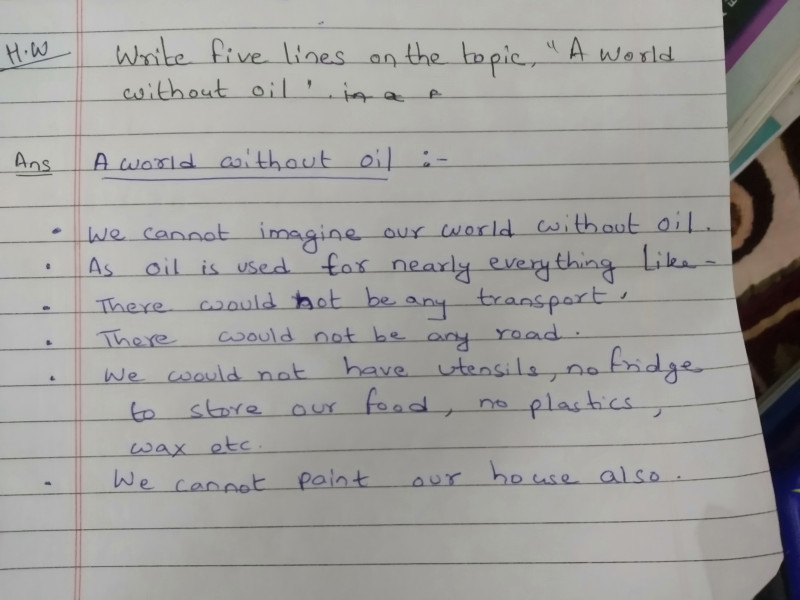 H.W Write five lines on the topic, "A world
without oil".
Ans A world without oil :-
• We cannot imagine our world without oil.
• As oil is used for nearly everything like -
• There would not be any transport,
• There would not be any road.
• We would not have utensils, no fridge
to store our food, no plastics,
wax etc.
• We cannot paint our house also.